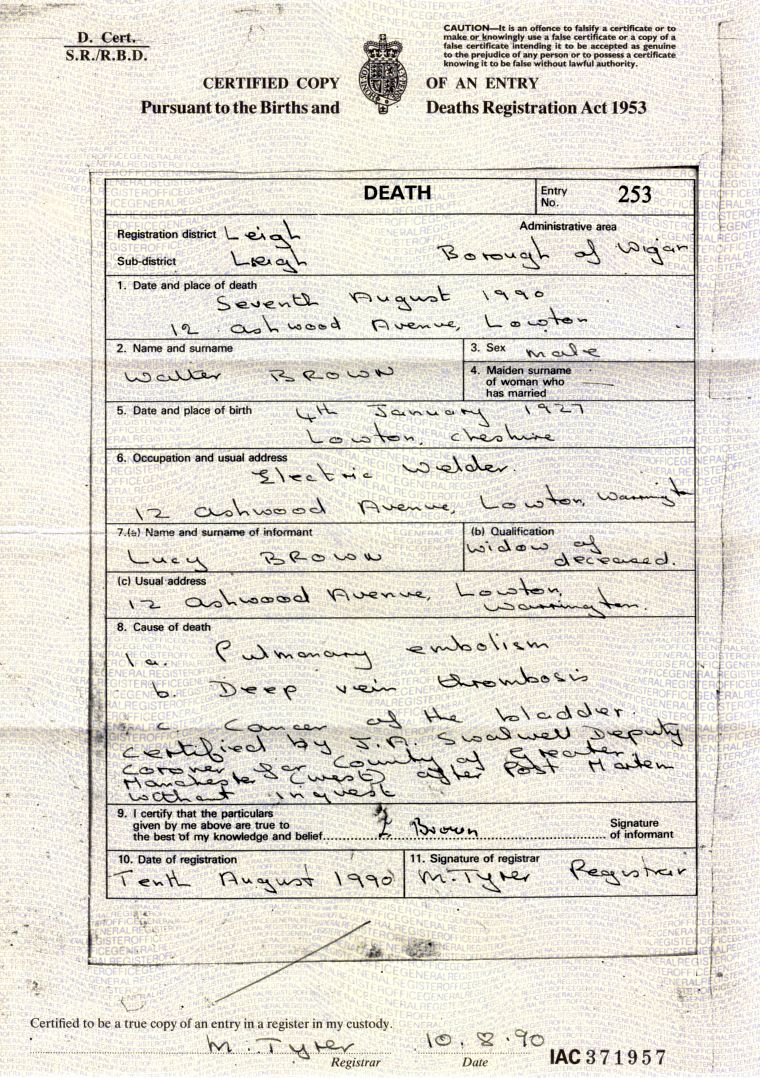 D. Cert.
S.R./R.B.D.
CAUTION—It is an offence to falsify a certificate or to
make or knowingly use a false certificate or a copy of a
false certificate intending it to be accepted as genuine
to the prejudice of any person or to possess a certificate
knowing it to be false without lawful authority.
CERTIFIED COPY OF AN ENTRY
Pursuant to the Births and Deaths Registration Act 1953
DEATH
Entry No. 253
Registration district Leigh
Administrative area
Sub-district Leigh
Borough of Wigan
1. Date and place of death
Seventh August 1990
12 Ashwood Avenue, Lowton
2. Name and surname
Walter BROWN
3. Sex male
4. Maiden surname
of woman who
has married
5. Date and place of birth 4th January 1927
Lowton, Cheshire
6. Occupation and usual address
Electric Welder.
12 Ashwood Avenue, Lowton, Warrington
7.(a) Name and surname of informant
Lucy BROWN
(b) Qualification
Widow of
deceased.
(c) Usual address
12 Ashwood Avenue, Lowton,
Warrington.
8. Cause of death
1 a. Pulmonary embolism
b. Deep vein thrombosis
c. Cancer of the bladder.
Certified by J.A. Swalwell Deputy
Coroner for County of Greater
Manchester (West) after Post Mortem
without inquest
9. I certify that the particulars
given by me above are true to
the best of my knowledge and belief L Brown Signature
of informant
10. Date of registration
Tenth August 1990
11. Signature of registrar
M. Tyrer Registrar
Certified to be a true copy of an entry in a register in my custody.
M. Tyrer Registrar
10.8.90 Date
IAC 371957